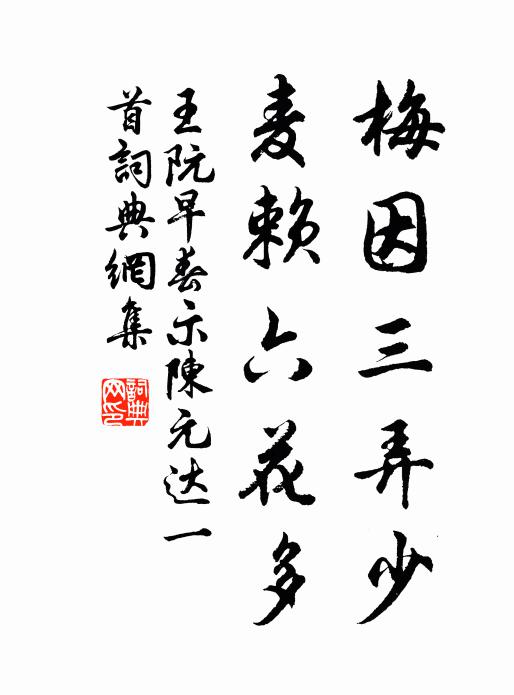 梅因三弄少
麦赖六花多
王阮早春示陳元达一
首詞典網集
詞典网印